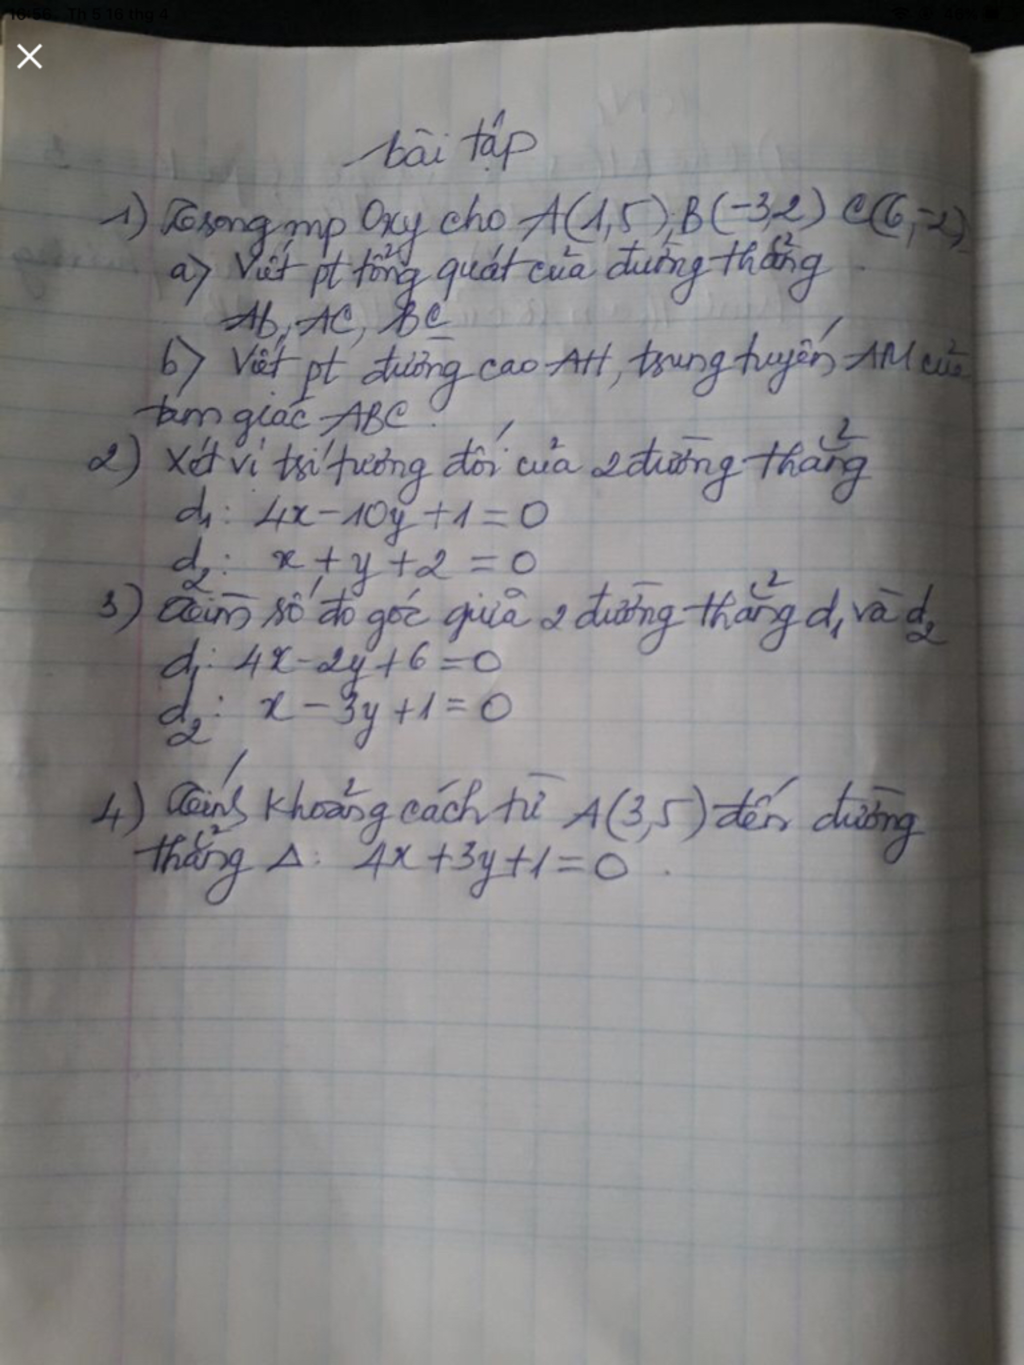 16:56 Th 5 16 thg 4
bài tập
1) Trong mp Oxy cho A(1,5), B(-3,2) C(6,-2)
a) Viết pt tổng quát của đường thẳng
Ab, AC, BC
b) Viết pt đường cao AH, trung tuyến AM của
tam giác ABC.
2) Xét vị trí tương đối của 2 đường thẳng
d1: 4x-10y+1=0
d2: x+y+2=0
3) Tìm số đo góc giữa 2 đường thẳng d1 và d2
d1: 4x-2y+6=0
d2: x-3y+1=0
4) Tính khoảng cách từ A(3,5) đến đường
thẳng Δ: 4x+3y+1=0.